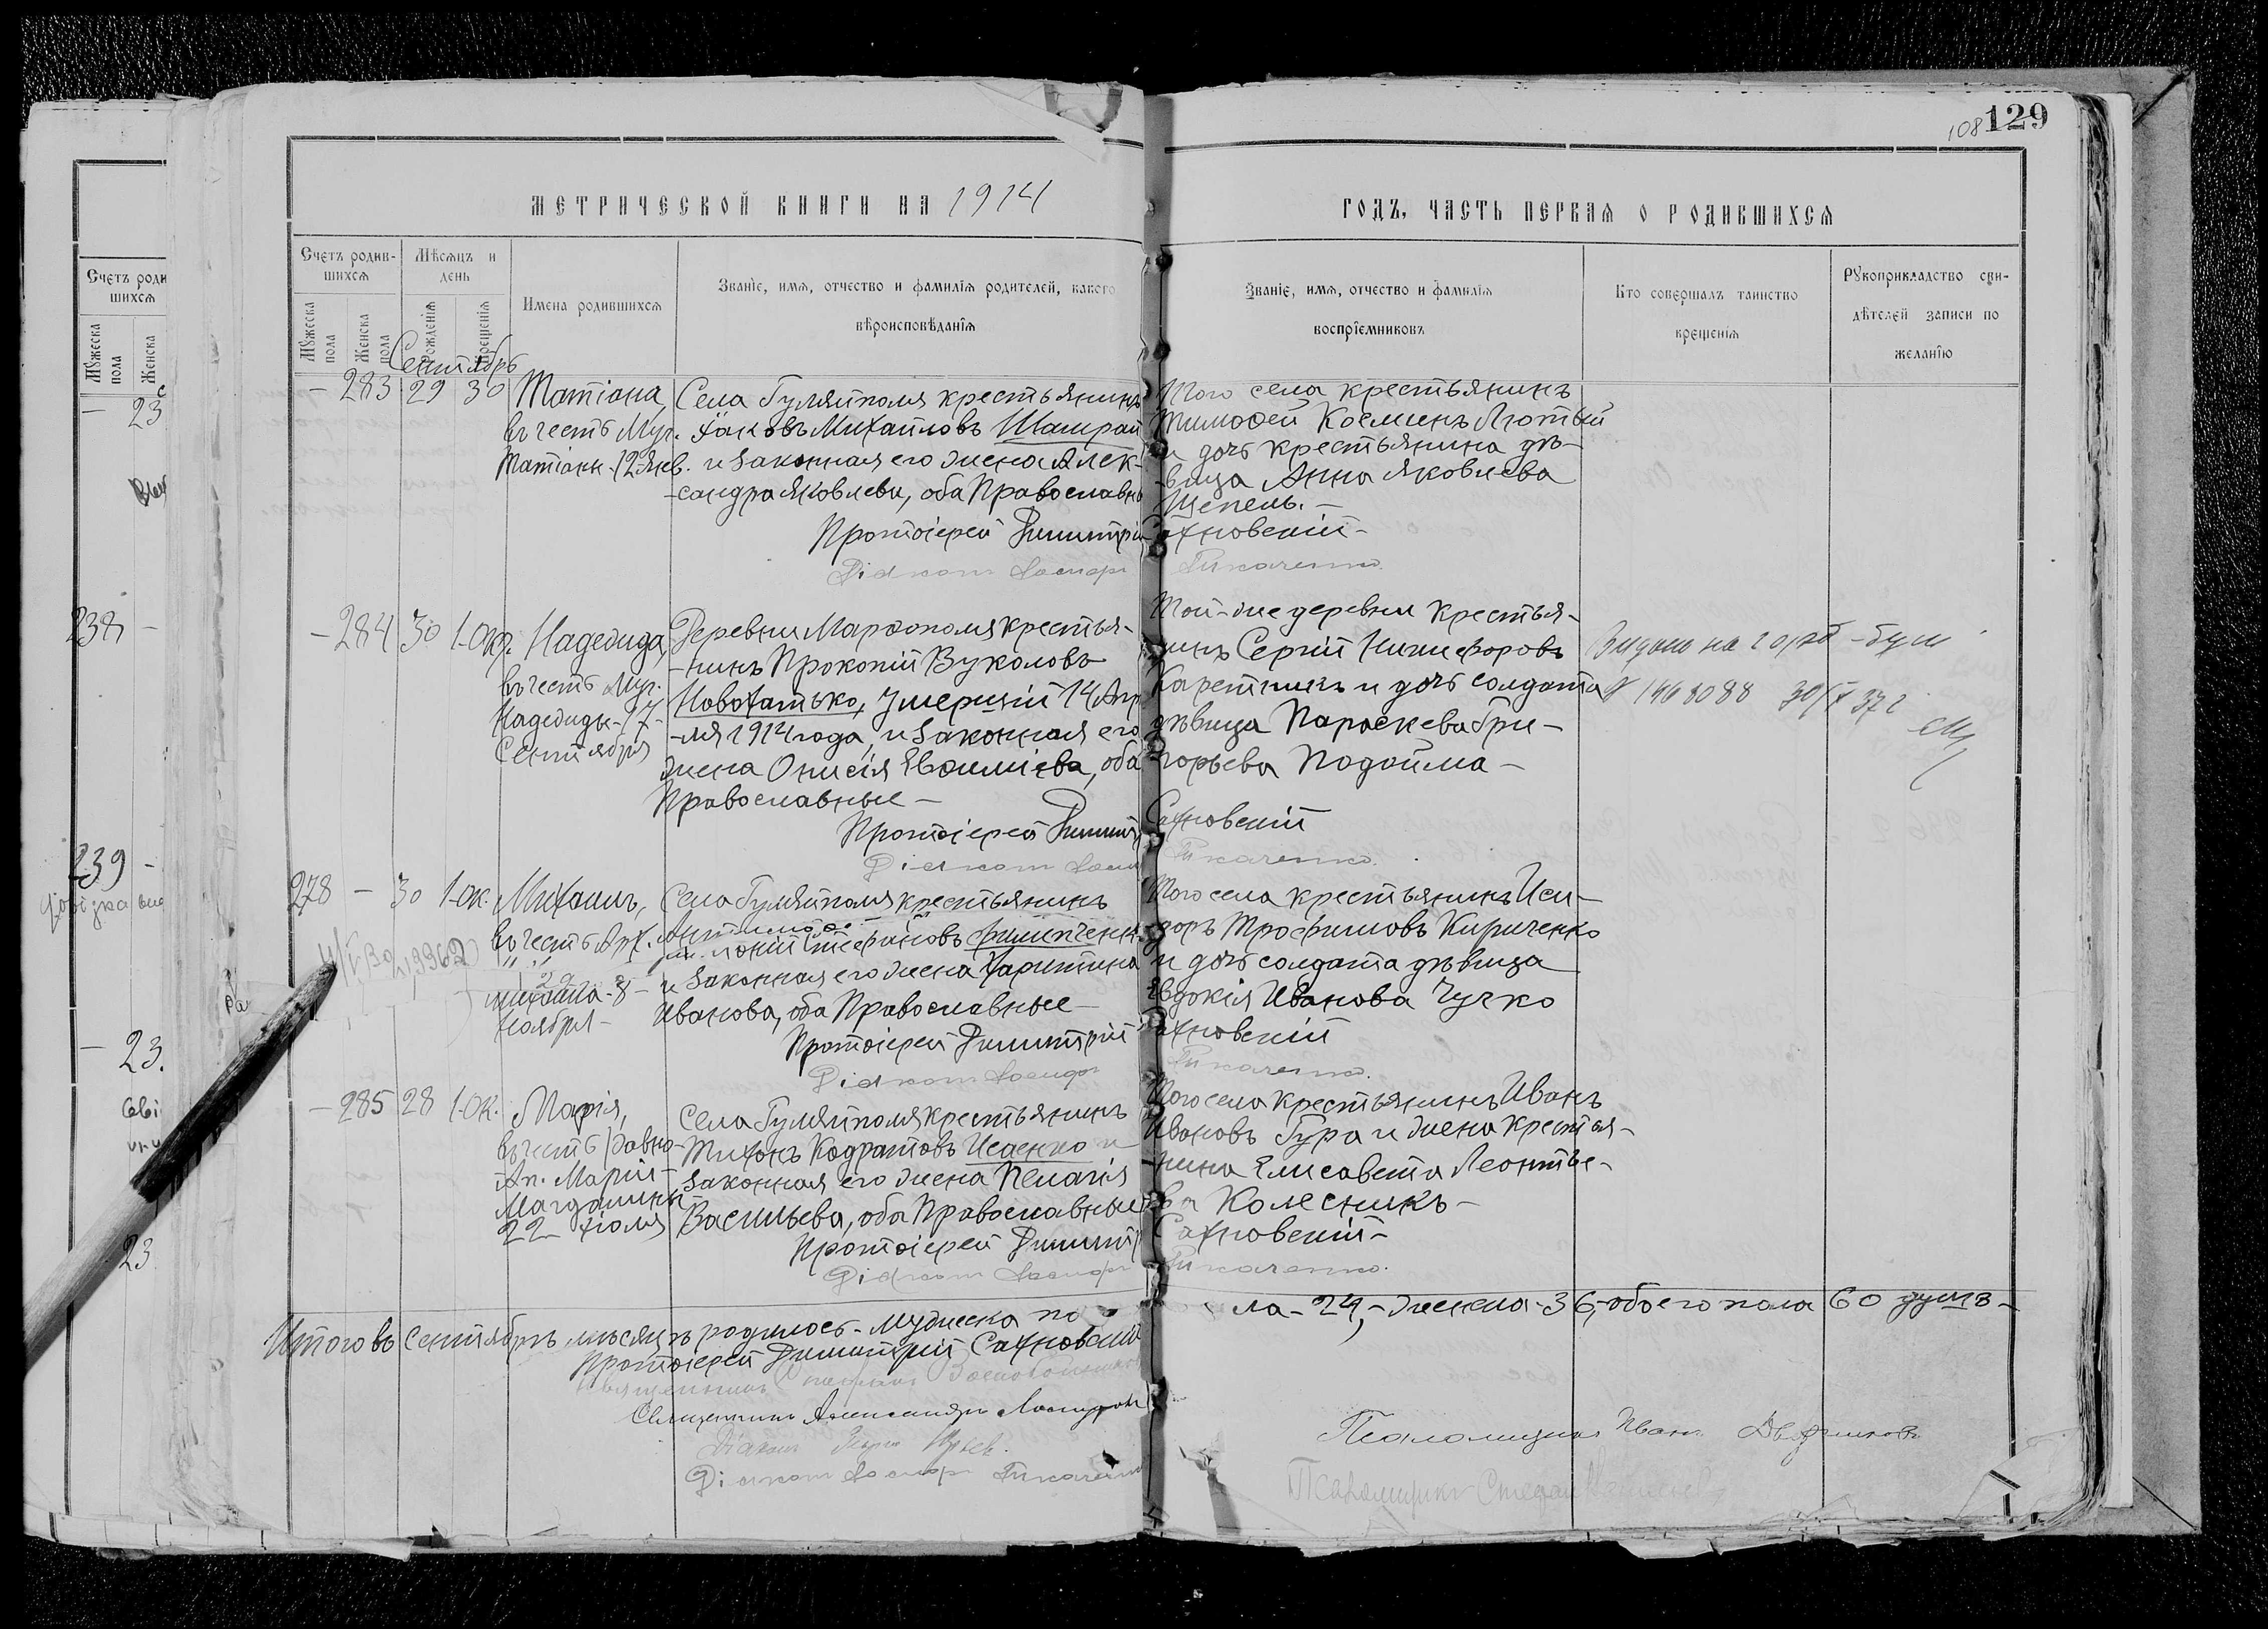 108 129
МЕТРИЧЕСКОЙ КНИГИ НА 1914
ГОДЪ, ЧАСТЬ ПЕРВАЯ О РОДИВШИХСЯ
Счетъ родив-
шихся
Мѣсяцъ и
день
Мужеска
пола
Женска
пола
Рожденія
Крещенія
Имена родившихся
Званіе, имя, отчество и фамилія родителей, какого
вѣроисповѣданія
Званіе, имя, отчество и фамилія
воспріемниковъ
Кто совершалъ таинство
крещенія
Рукоприкладство сви-
дѣтелей записи по
желанію
Сентябрь
– 283 29 30
Татіана,
въ честь Муч.
Татіаны 12 Янв.
Села Гуляйполя крестьянинъ
Іаковъ Михайловъ Шамрай
и законная его жена Алек-
-сандра Яковлева, оба Православн
Того села крестьянинъ
Тимофей Косминъ Лютый
и дочь крестьянина дѣ-
-вица Анна Яковлева
Щепель. –
Протоіерей Димитрій Сахновскій –
Діаконъ Ткаченко.
– 284 30 1-Окт.
Надежда,
въ честь Муч.
Надежды – 17 –
Сентября
Деревни Марфополя крестья-
-нинъ Прокопій Вуколовъ
Новохатько, умершій 14 Апр
-ля 1914 года, и законная его
жена Онисія Евфиміева, оба
Православные –
Той-же деревни крестья-
-нинъ Сергій Никифоровъ
Каретникъ и дочь солдата
дѣвица Параскева Гри-
-горьева Подойма –
№ 1468088 30/V 37 г
Протоіерей Димитр Сахновскій
Діаконъ Ткаченко.
278 – 30 1-Ок.
Михаилъ,
въ честь Арх.
Михаила – 8 –
Ноября –
Села Гуляйполя крестьянинъ
Стефановъ Филипченк
и законная его жена Харитина
Иванова, оба Православные –
Того села крестьянинъ Иси-
-доръ Трофимовъ Кириченко
и дочь солдата дѣвица
Евдокія Иванова Чучко
Протоіерей Димитрій Сахновскій
Діаконъ Ткаченко.
– 285 28 1-Ок.
Марія,
въ честь равно-
Ап. Маріи
Магдалины –
22 Іюля
Села Гуляйполя крестьянинъ
Тихонъ Кодратовъ Исаенко и
законная его жена Пелагія
Васильева, оба Православные
Того села крестьянинъ Иванъ
Ивановъ Гура и жена крестья-
-нина Елисавета Леонтье-
-ва Колесникъ –
Протоіерей Димитр Сахновскій –
Діаконъ Ткаченко.
Итого въ Сентябрѣ мѣсяцѣ родилось – мужеска по ла – 24, – женска – 36, обоего пола 60 душъ –
Протоіерей Димитрій Сахновскій
Священникъ
Священникъ Александръ
Діаконъ
Діаконъ Ткаченко
Псаломщикъ Иванъ
Псаломщикъ Стефанъ
Счетъ роди
шихся
Мужеска
пола
Женска
– 23
238 –
239 –
– 23.
23